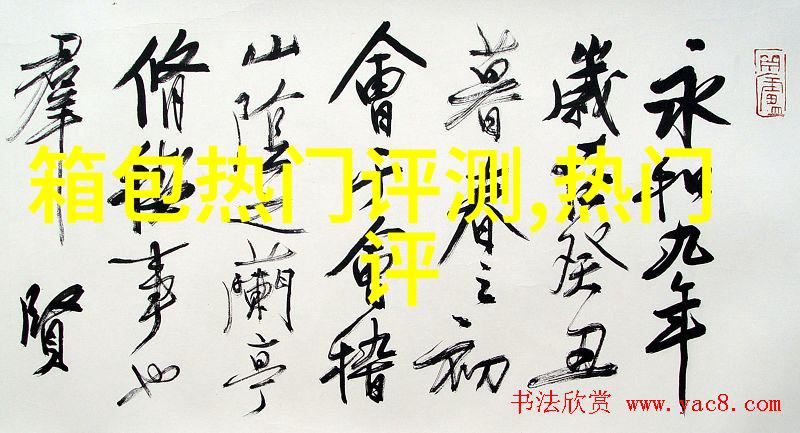 永和九年
歲在癸丑
暮春之初
會于會稽
山陰之蘭亭
脩禊事也
羣賢
箱包热门评测,热门
评
书法欣赏 www.yac8.com